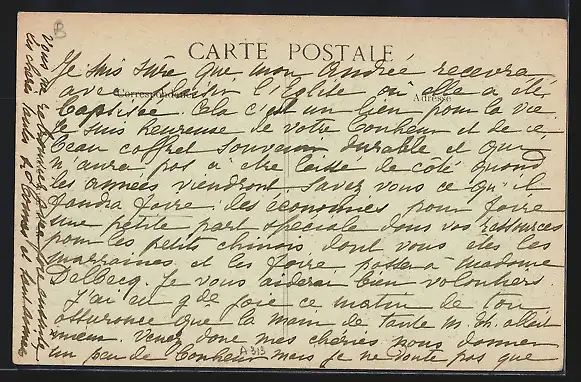 B
CARTE POSTALE
Correspondance
Adresse
Je suis sûre que mon Andrée recevra
avec plaisir l'Eglise où elle a été
baptisée. Cela c'est un lien pour la vie.
Je suis heureuse de votre bonheur et de ce
beau coffret souvenir durable et qui
n'aura pas à être laissé de côté quand
les années viendront. Savez vous ce qu'il
faudra faire : des économies pour faire
une petite part spéciale dans vos ressources
pour les petits chinois dont vous êtes les
marraines et les faire passer à madame
Delbecq. Je vous aiderai bien volontiers.
J'ai eu gde joie ce matin de ton
assurance que la main de tante M. Th. allait
mieux. Venez donc mes chéries nous donner
un peu de bonheur mais je ne doute pas que
vous ne retrouviez avec joie
du chères tantes
A 313